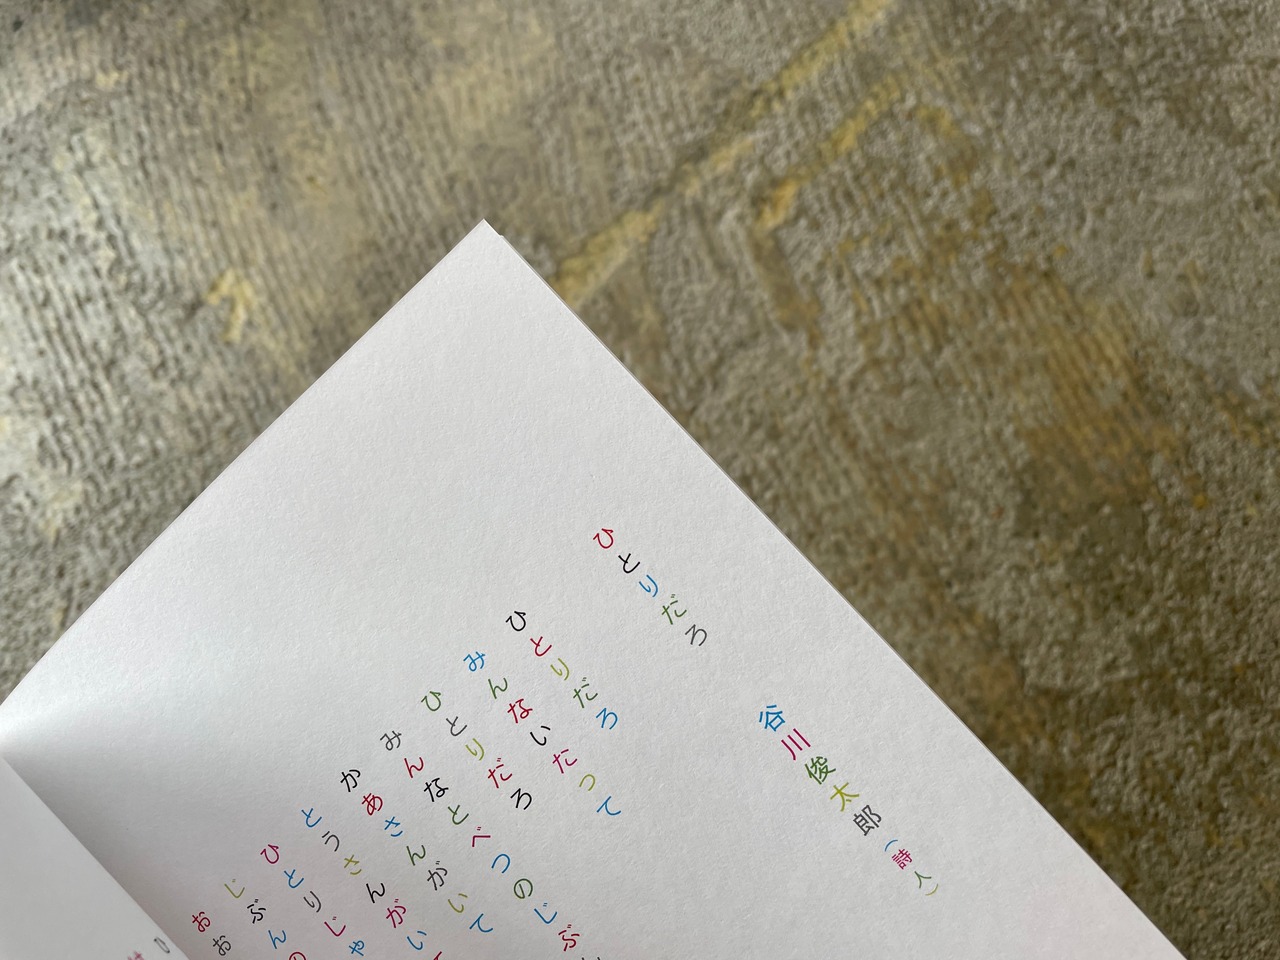 ひとりだろ
谷川俊太郎（詩人）
ひとりだろ
みんないたって
ひとりだろ
みんなとべつのじぶ
かあさんがいて
とうさんがい
ひとりじゃ
じぶんの
おお